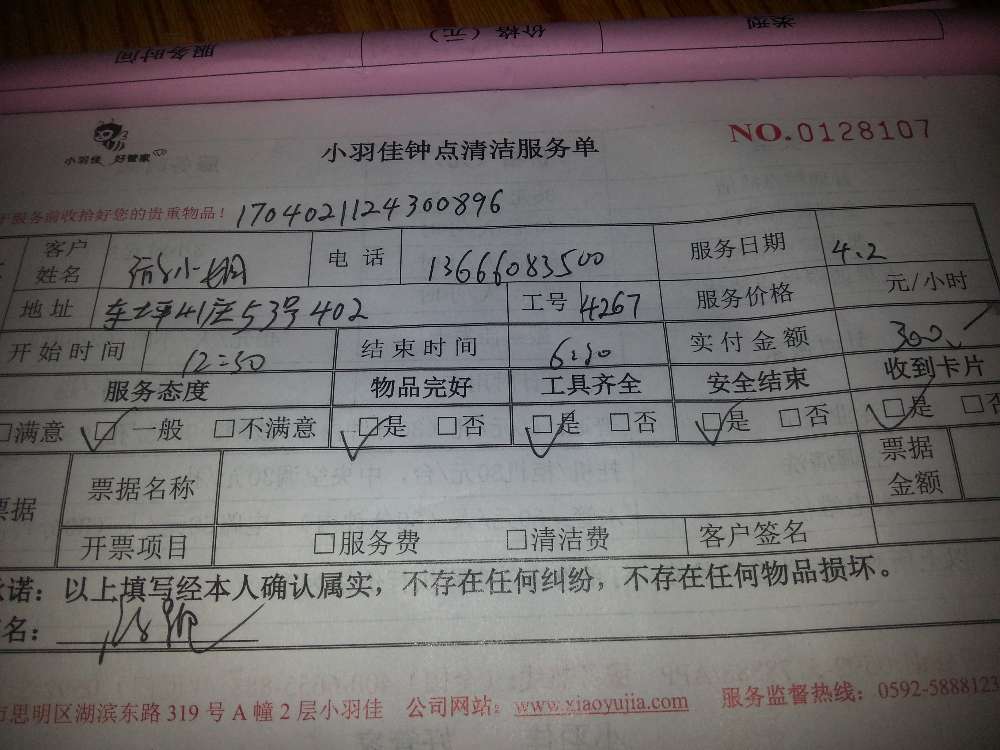 服务时间 价格（元） 类型
小羽佳 好管家
小羽佳钟点清洁服务单
NO.0128107
服务前收拾好您的贵重物品！ 1704021124300896
客户姓名 小 电话 13666083500 服务日期 4.2
地址 东坪41庄53号402 工号 4267 服务价格 元/小时
开始时间 12:30 结束时间 6:30 实付金额 300
服务态度 物品完好 工具齐全 安全结束 收到卡片
□满意 □一般 □不满意 □是 □否 □是 □否 □是 □否 □是 □否
票据 票据名称 票据金额
开票项目 □服务费 □清洁费 客户签名
承诺：以上填写经本人确认属实，不存在任何纠纷，不存在任何物品损坏。
名：
市思明区湖滨东路319号A幢2层小羽佳 公司网站：www.xiaoyujia.com 服务监督热线：0592-5888123